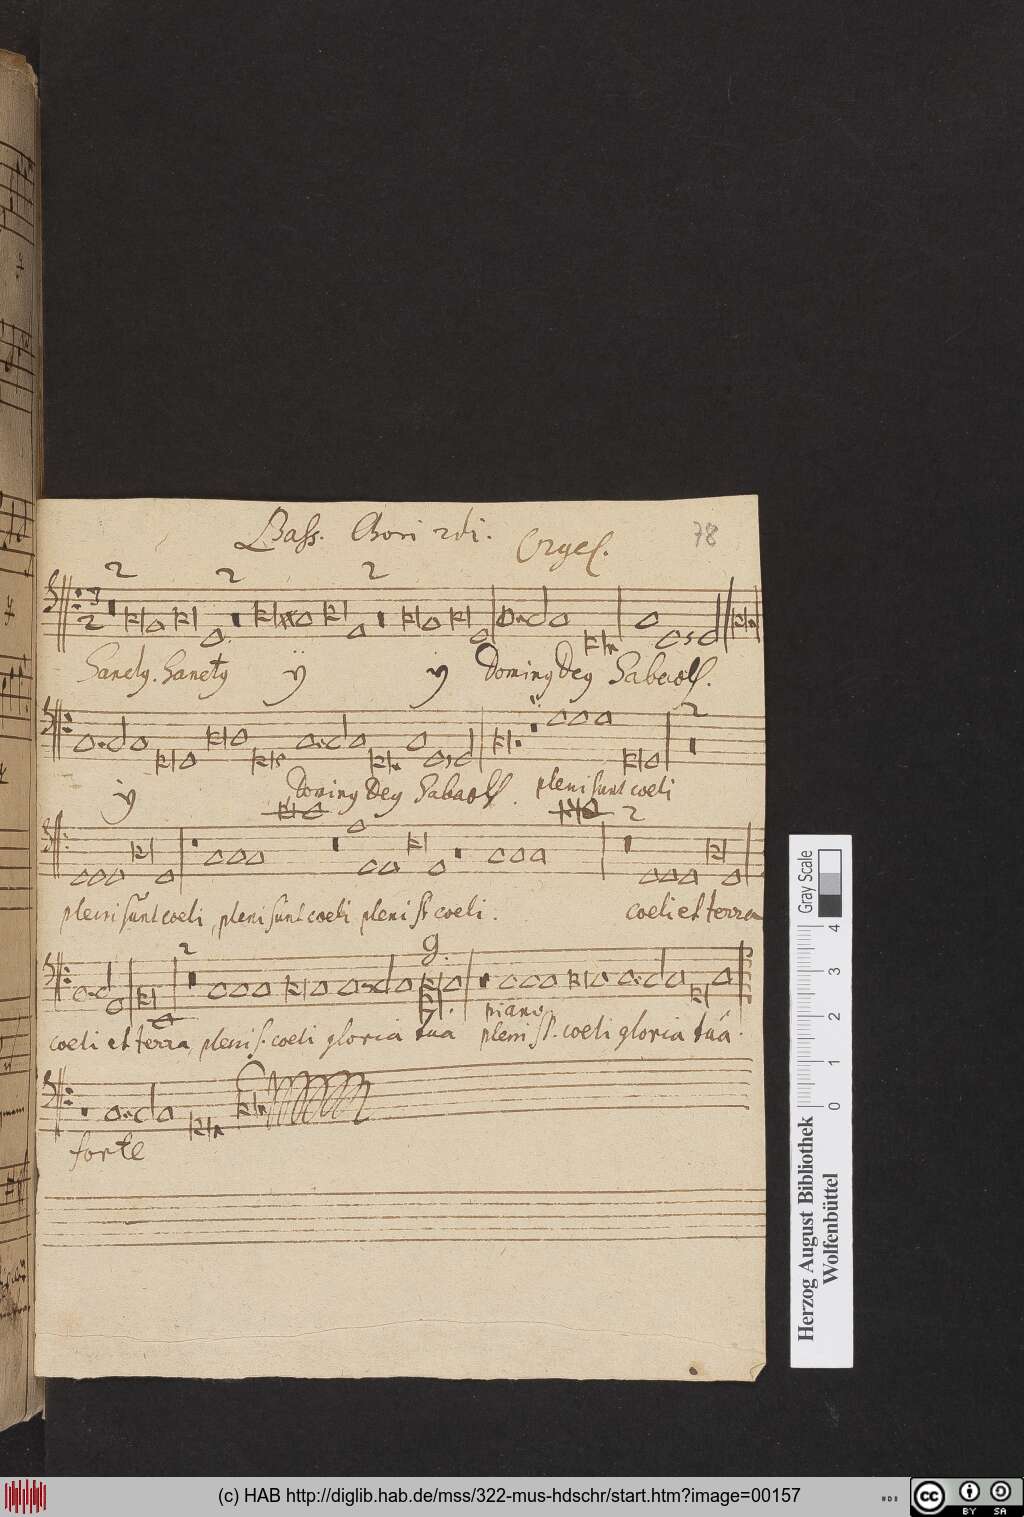 Bass. Chori 2di. Orgel. 78
2 2 2
3
2
Sanct9. Sanct9 ij ij Domin9 De9 Sabaoth.
2
ij Domin9 De9 Sabaoth. pleni sunt coeli
2
pleni sunt coeli, pleni sunt coeli pleni st coeli. coeli et terra
2 9.
piano
coeli et terra, pleni s. coeli gloria tua pleni st. coeli gloria tuá.
forte
Gray Scale
0 1 2 3 4
Herzog August Bibliothek
Wolfenbüttel
(c) HAB http://diglib.hab.de/mss/322-mus-hdschr/start.htm?image=00157
cc BY SA